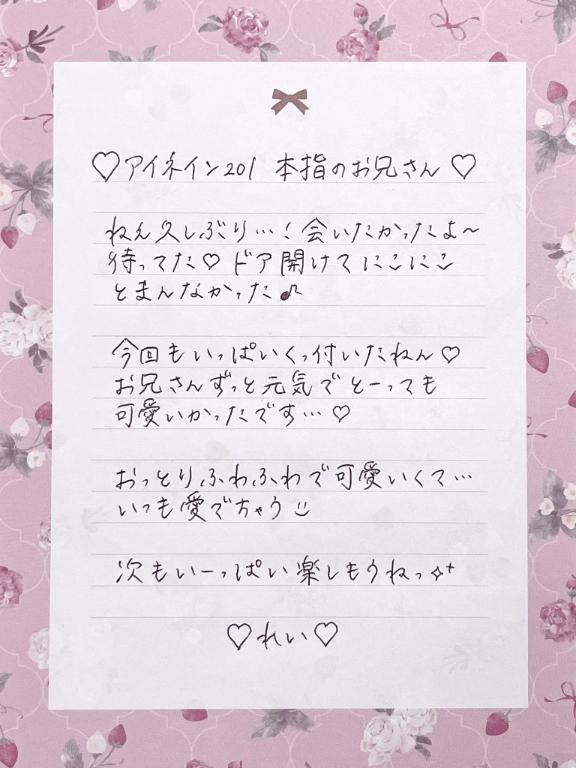 ♡アイネイン201 本指のお兄さん♡
ねん久しぶり…！会いたかったよ〜
待ってた♡ドア開けてにこにこ
とまんなかった♪
今回もいっぱいくっ付いたねん♡
お兄さんずっと元気でとーっても
可愛いかったです…♡
おっとりふわふわで可愛いくて…
いつも愛でちゃう
次もいーっぱい楽しもうねっ✧⁺
♡れい♡